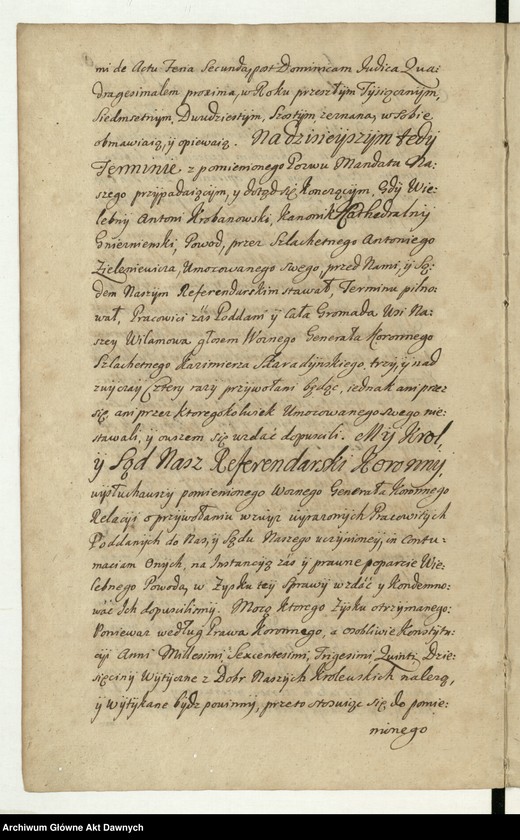 mi de Actu Feria Secunda, post Dominicam Judica Qua:
dragesimalem proxima, w Roku przeszłym Tysiącznym,
Siedmsetnym, Dwudziestym, Szostym, zeznana, w sobie
obmawiaią, y opiewaią. Na dzisieyszym tedy
Terminie z pomienionego Pozwu Mandatu Na:
szego przypadaiącym, y dotąd się Konczącym, Gdy Wie:
lebny Antoni Krzbanowski, Kanonik Cathedralny
Gnieznienski, Powod, przez Szlachetnego Antoniego
Zieleniewicza, Umocowanego swego, przed Nami, y Są:
dem Naszym Referendarskim stawał, Terminu pilno:
wał, Pracowici zaś Poddani y Cała Gromada Wsi Na:
szey Wilamowa głosem Woznego Generała Koronnego
Szlachetnego Kazimierza Skaradynskiego, trzy, y nad
zwyczay Cztery razy przywołani będąc, iednak ani przez
się, ani przez Ktoregokolwiek Umocowanego swego nie:
stawali, y owszem się wzdać dopuscili. My Krol,
y Sąd Nasz Referendarski Koronny,
wysłuchawszy pomienionego Woznego Generała Koronnego
Relacyi o przywołaniu wzwyż wyrazonych Pracowitych
Poddanych do Nas, y Sądu Naszego uczynioney, in Contu:
maciam Onych, na Instancyą zaś y prawne poparcie Wie:
lebnego Powoda, w Zysku tey Sprawy wzdać y Kondemno:
wać Ich dopuscilismy. Mocą Ktorego Zysku otrzymanego:
Poniewaz według Prawa Koronnego, a osobliwie Konstytu:
cyi Anni Millesimi Sexcentesimi, Trigesimi Quinti Dzie:
sięciny Wytyczne z Dobr Naszych Krolewskich nalezą,
y wytykane bydz powinny, przeto stosuiąc się do pomie:
nionego
Archiwum Główne Akt Dawnych